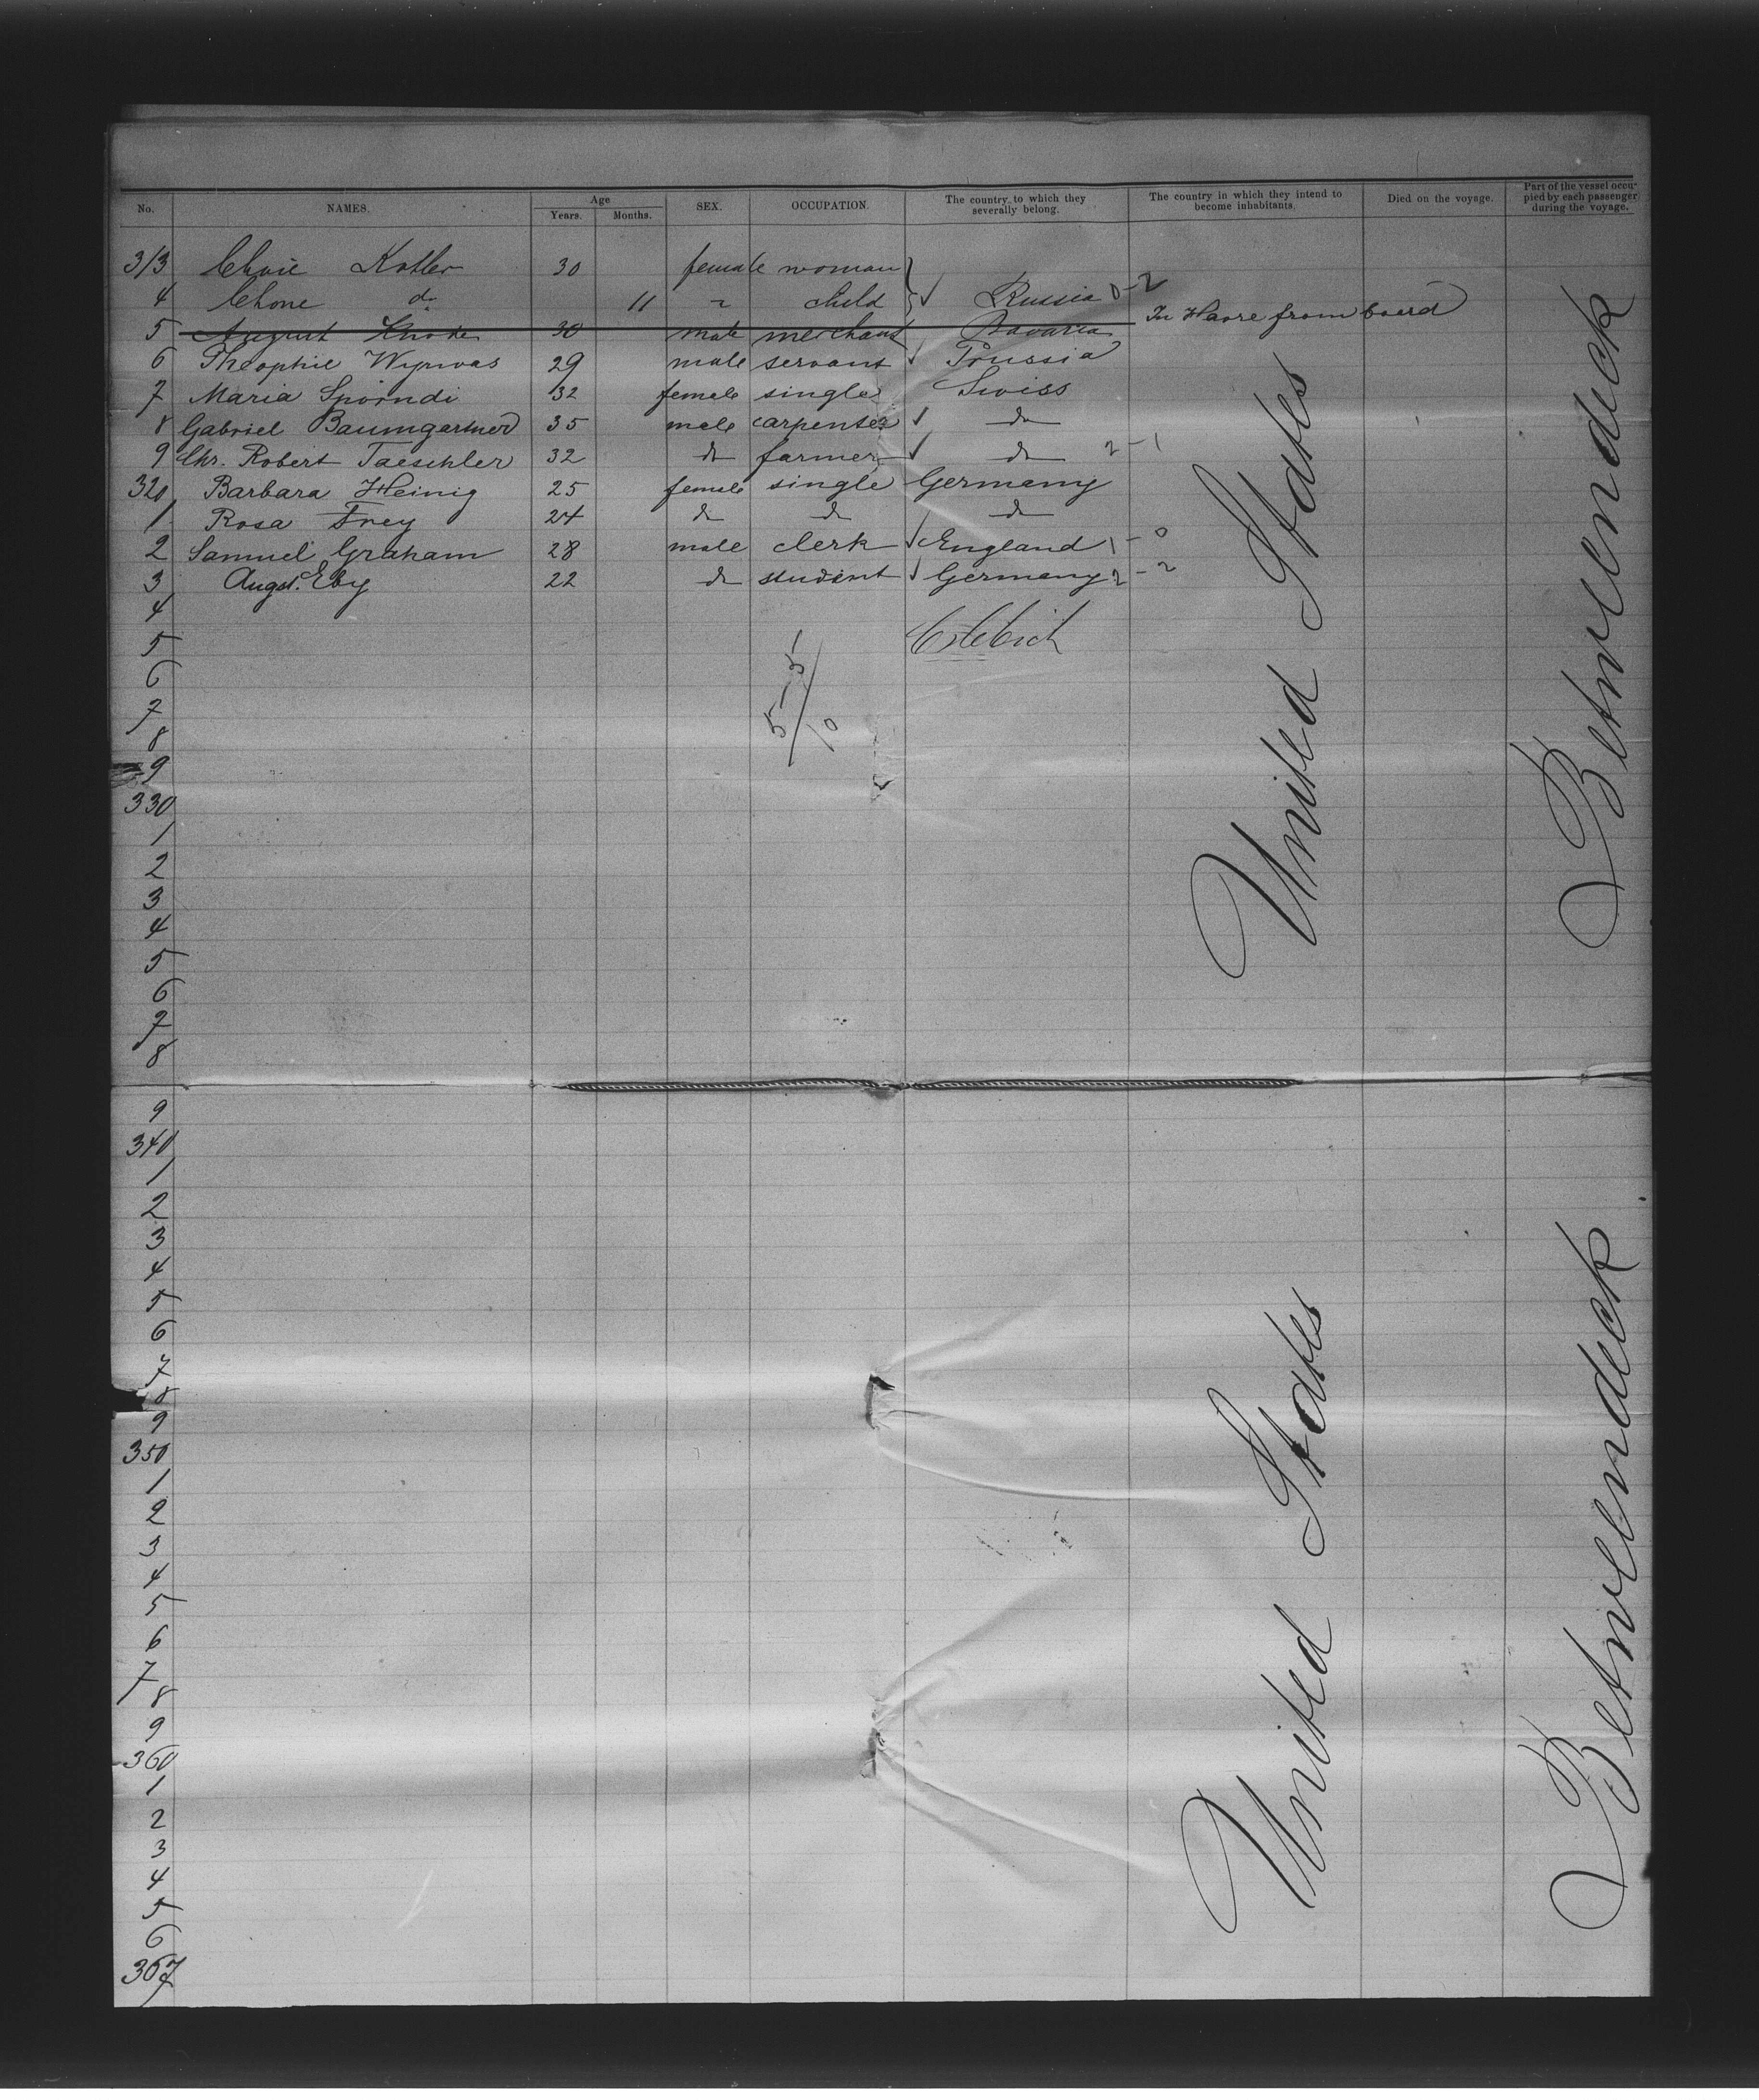 No. NAMES. Age Years. Months. SEX. OCCUPATION. The country to which they severally belong. The country in which they intend to become inhabitants. Died on the voyage. Part of the vessel occupied by each passenger during the voyage.
313 Chaie Kotler 30 female woman
4 Chone do 11 " child Russia 0-2
5 August Knode 30 male merchant Bavaria In Havre from board
6 Theophil Wyrwas 29 male servant Prussia
7 Maria Spörndi 32 female single Swiss
8 Gabriel Baumgartner 35 male carpenter do
9 Chr. Robert Taeschler 32 do farmer do 2-1
320 Barbara Heinig 25 female single Germany
1 Rosa Frey 24 do do do
2 Samuel Graham 28 male clerk England 1-0
3 Augst. Eby 22 do student Germany 2-2
4
5
6
7
8
9
330
1
2
3
4
5
6
7
8
9
340
1
2
3
4
5
6
7
8
9
350
1
2
3
4
5
6
7
8
9
360
1
2
3
4
5
6
367
5-5
10
United States
Betweendeck
United States
Betweendeck